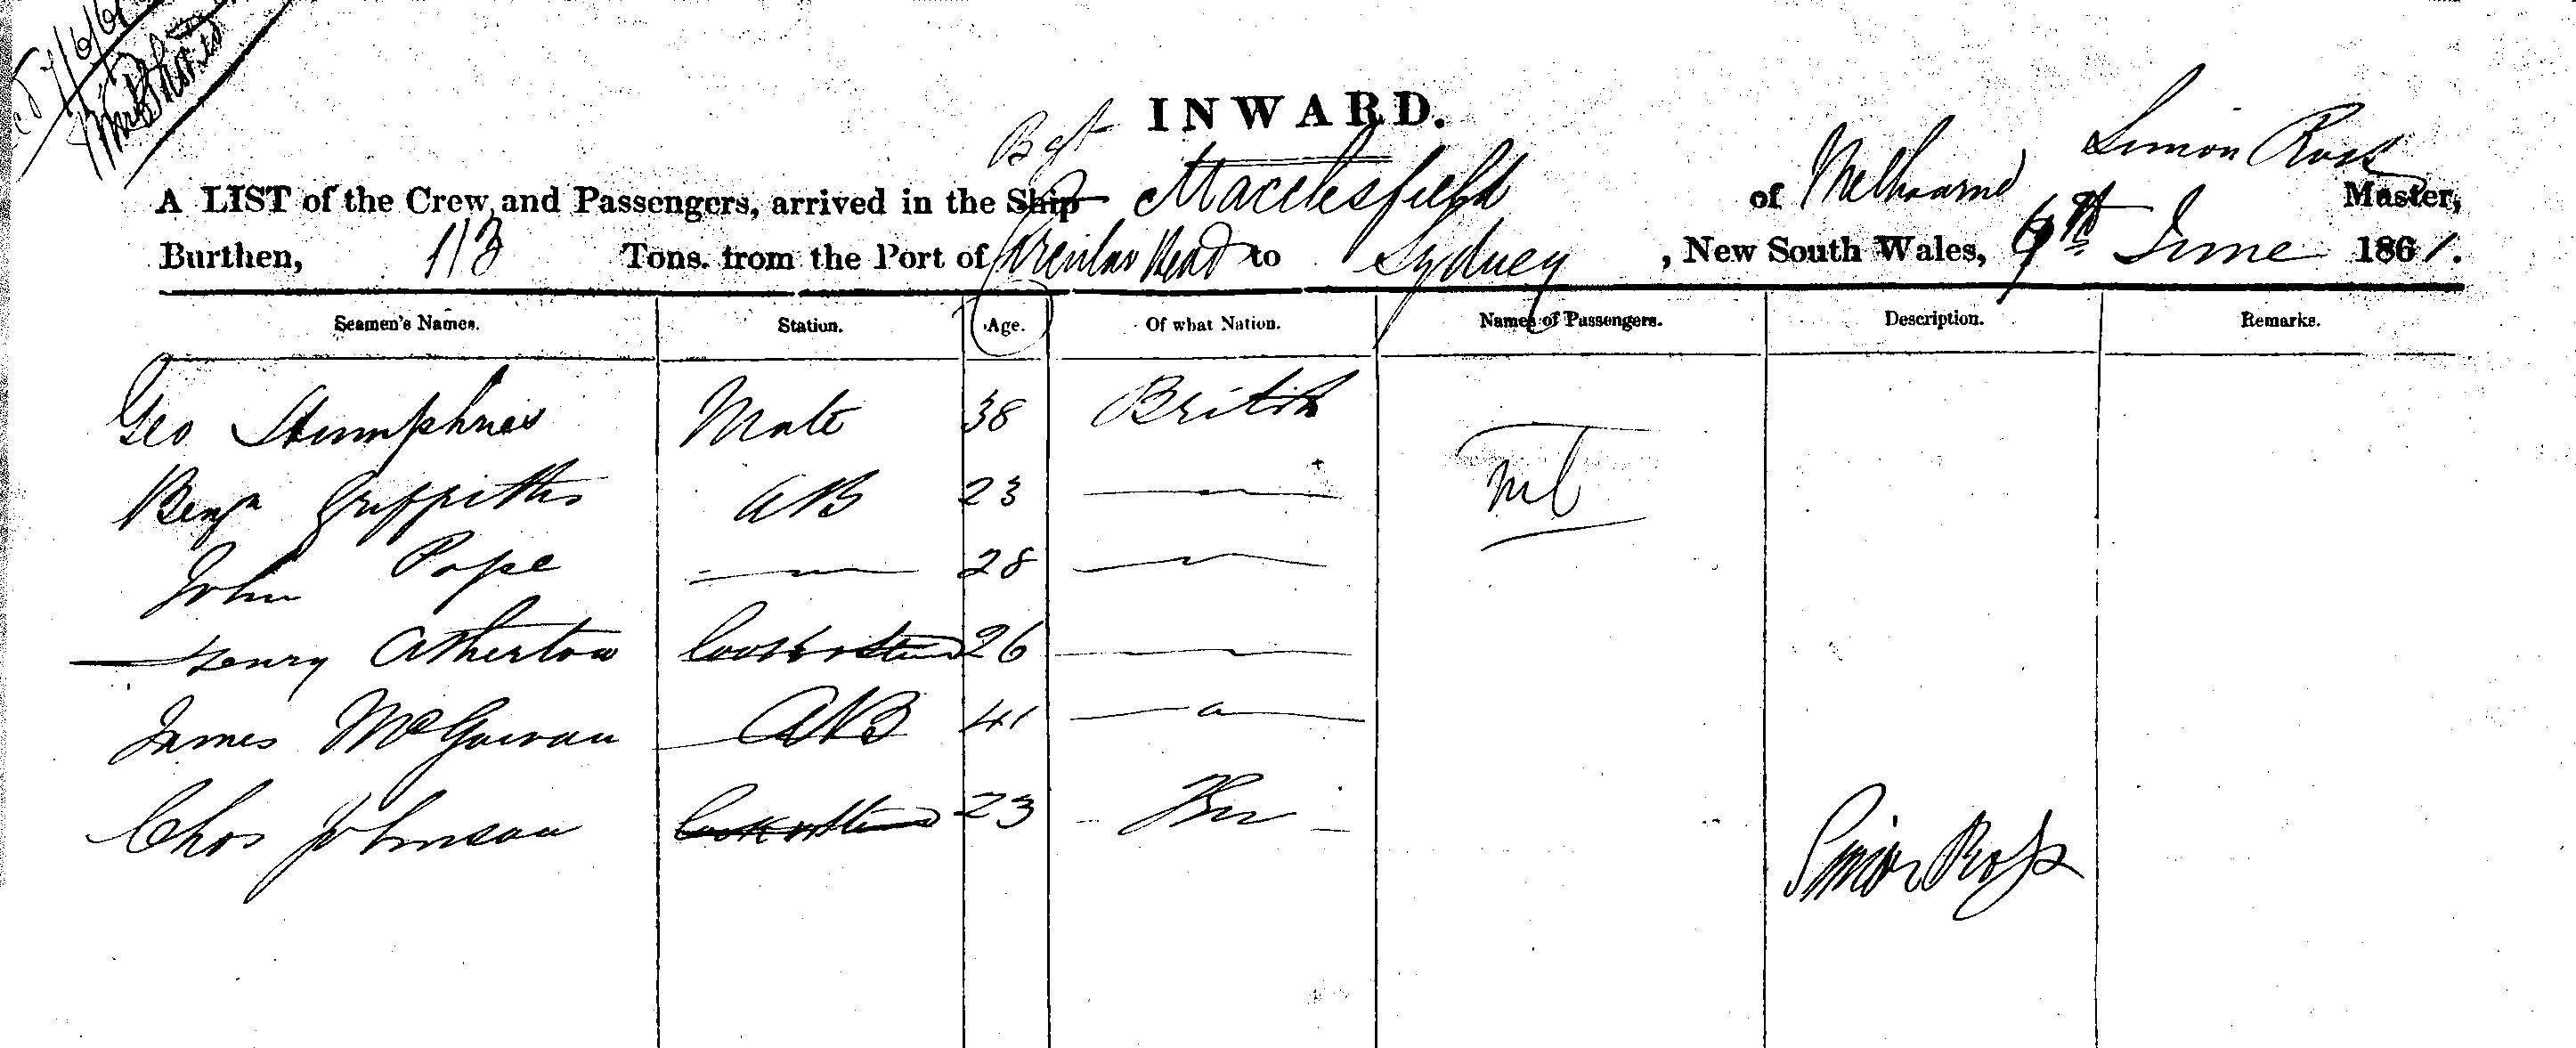 INWARD.
Bgt
Simon Ross
A LIST of the Crew and Passengers, arrived in the Ship Macclesfield of Melbourne, Master,
Burthen, 113 Tons. from the Port of Circular Head to Sydney, New South Wales, June 1861.
Seamen's Names. Station. Age. Of what Nation. Names of Passengers. Description. Remarks.
Geo Humphries Mate 38 British
Benjn Griffiths AB 23 — nil
John Pope — 28 —
Henry Atherton Cook & Stewd 26 —
James McGowan AB 41 —
Chas Johnson Cook & Stewd 23
Simon Ross